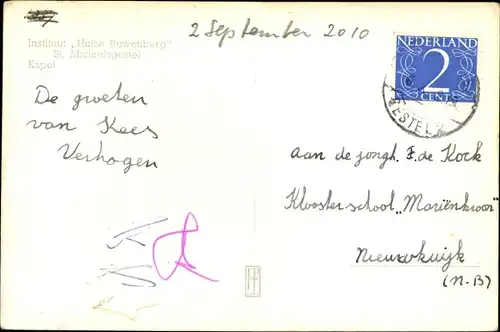 2 September 2010
Institut „Huize Ruwenberg"
St. Michielsgestel
Kapel
NEDERLAND
2
CENT
ESTEL
De groeten
van Kees
Verhagen
aan de jongh. F. de Kock
Kloosterschool „Mariënkroon"
Nieuwkuijk
(N-B)